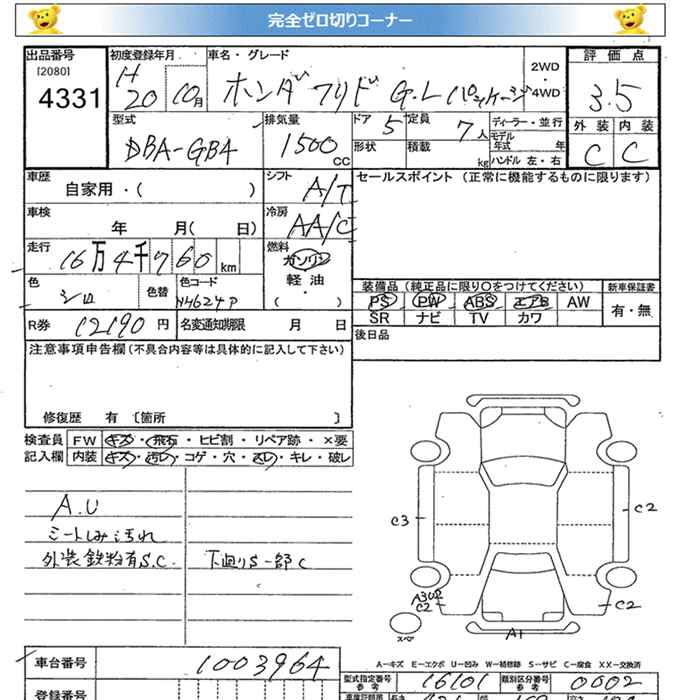 完全ゼロ切りコーナー
出品番号 初度登録年月 車名・グレード 評価点
[2080] H 2WD
4331 20 10月 ホンダ フリード G.L パッケージ ・4WD 3.5
型式 排気量 ドア 5 定員 7人 ディーラー・並行 外装 内装
DBA-GB4 1500cc 形状 積載 kg モデル年式 年 C C
ハンドル 左・右
車歴 シフト セールスポイント (正常に機能するものに限ります)
自家用・( ) A/T
車検 冷房
年 月( 日) AA/C
走行 燃料
16万4千760km ガソリン
色 色替 色コード 軽油
シロ NH624P ・( )
装備品 (純正品に限り○をつけてください) 新車保証書
PS PW ABS エアB AW 有・無
SR ナビ TV カワ
R券 12190円 名変通知期限 月 日 後日品
注意事項申告欄 (不具合内容等は具体的に記入して下さい)
修復歴 有 [箇所 ]
検査員 FW キズ・飛石・ヒビ割・リペア跡・×要
記入欄 内装 キズ・汚レ・コゲ・穴・スレ・キレ・破レ
A.U
シートしみ汚れ
外装鉄粉有S.C. 下廻りS一部C
C3 C2
A302
C2 C2
スペア A1
A−キズ E−エクボ U−凹み W−補修跡 S−サビ C−腐食 XX−交換済
車台番号 1003964
型式指定番号 参考 16101 類別区分番号 参考 0002
登録番号